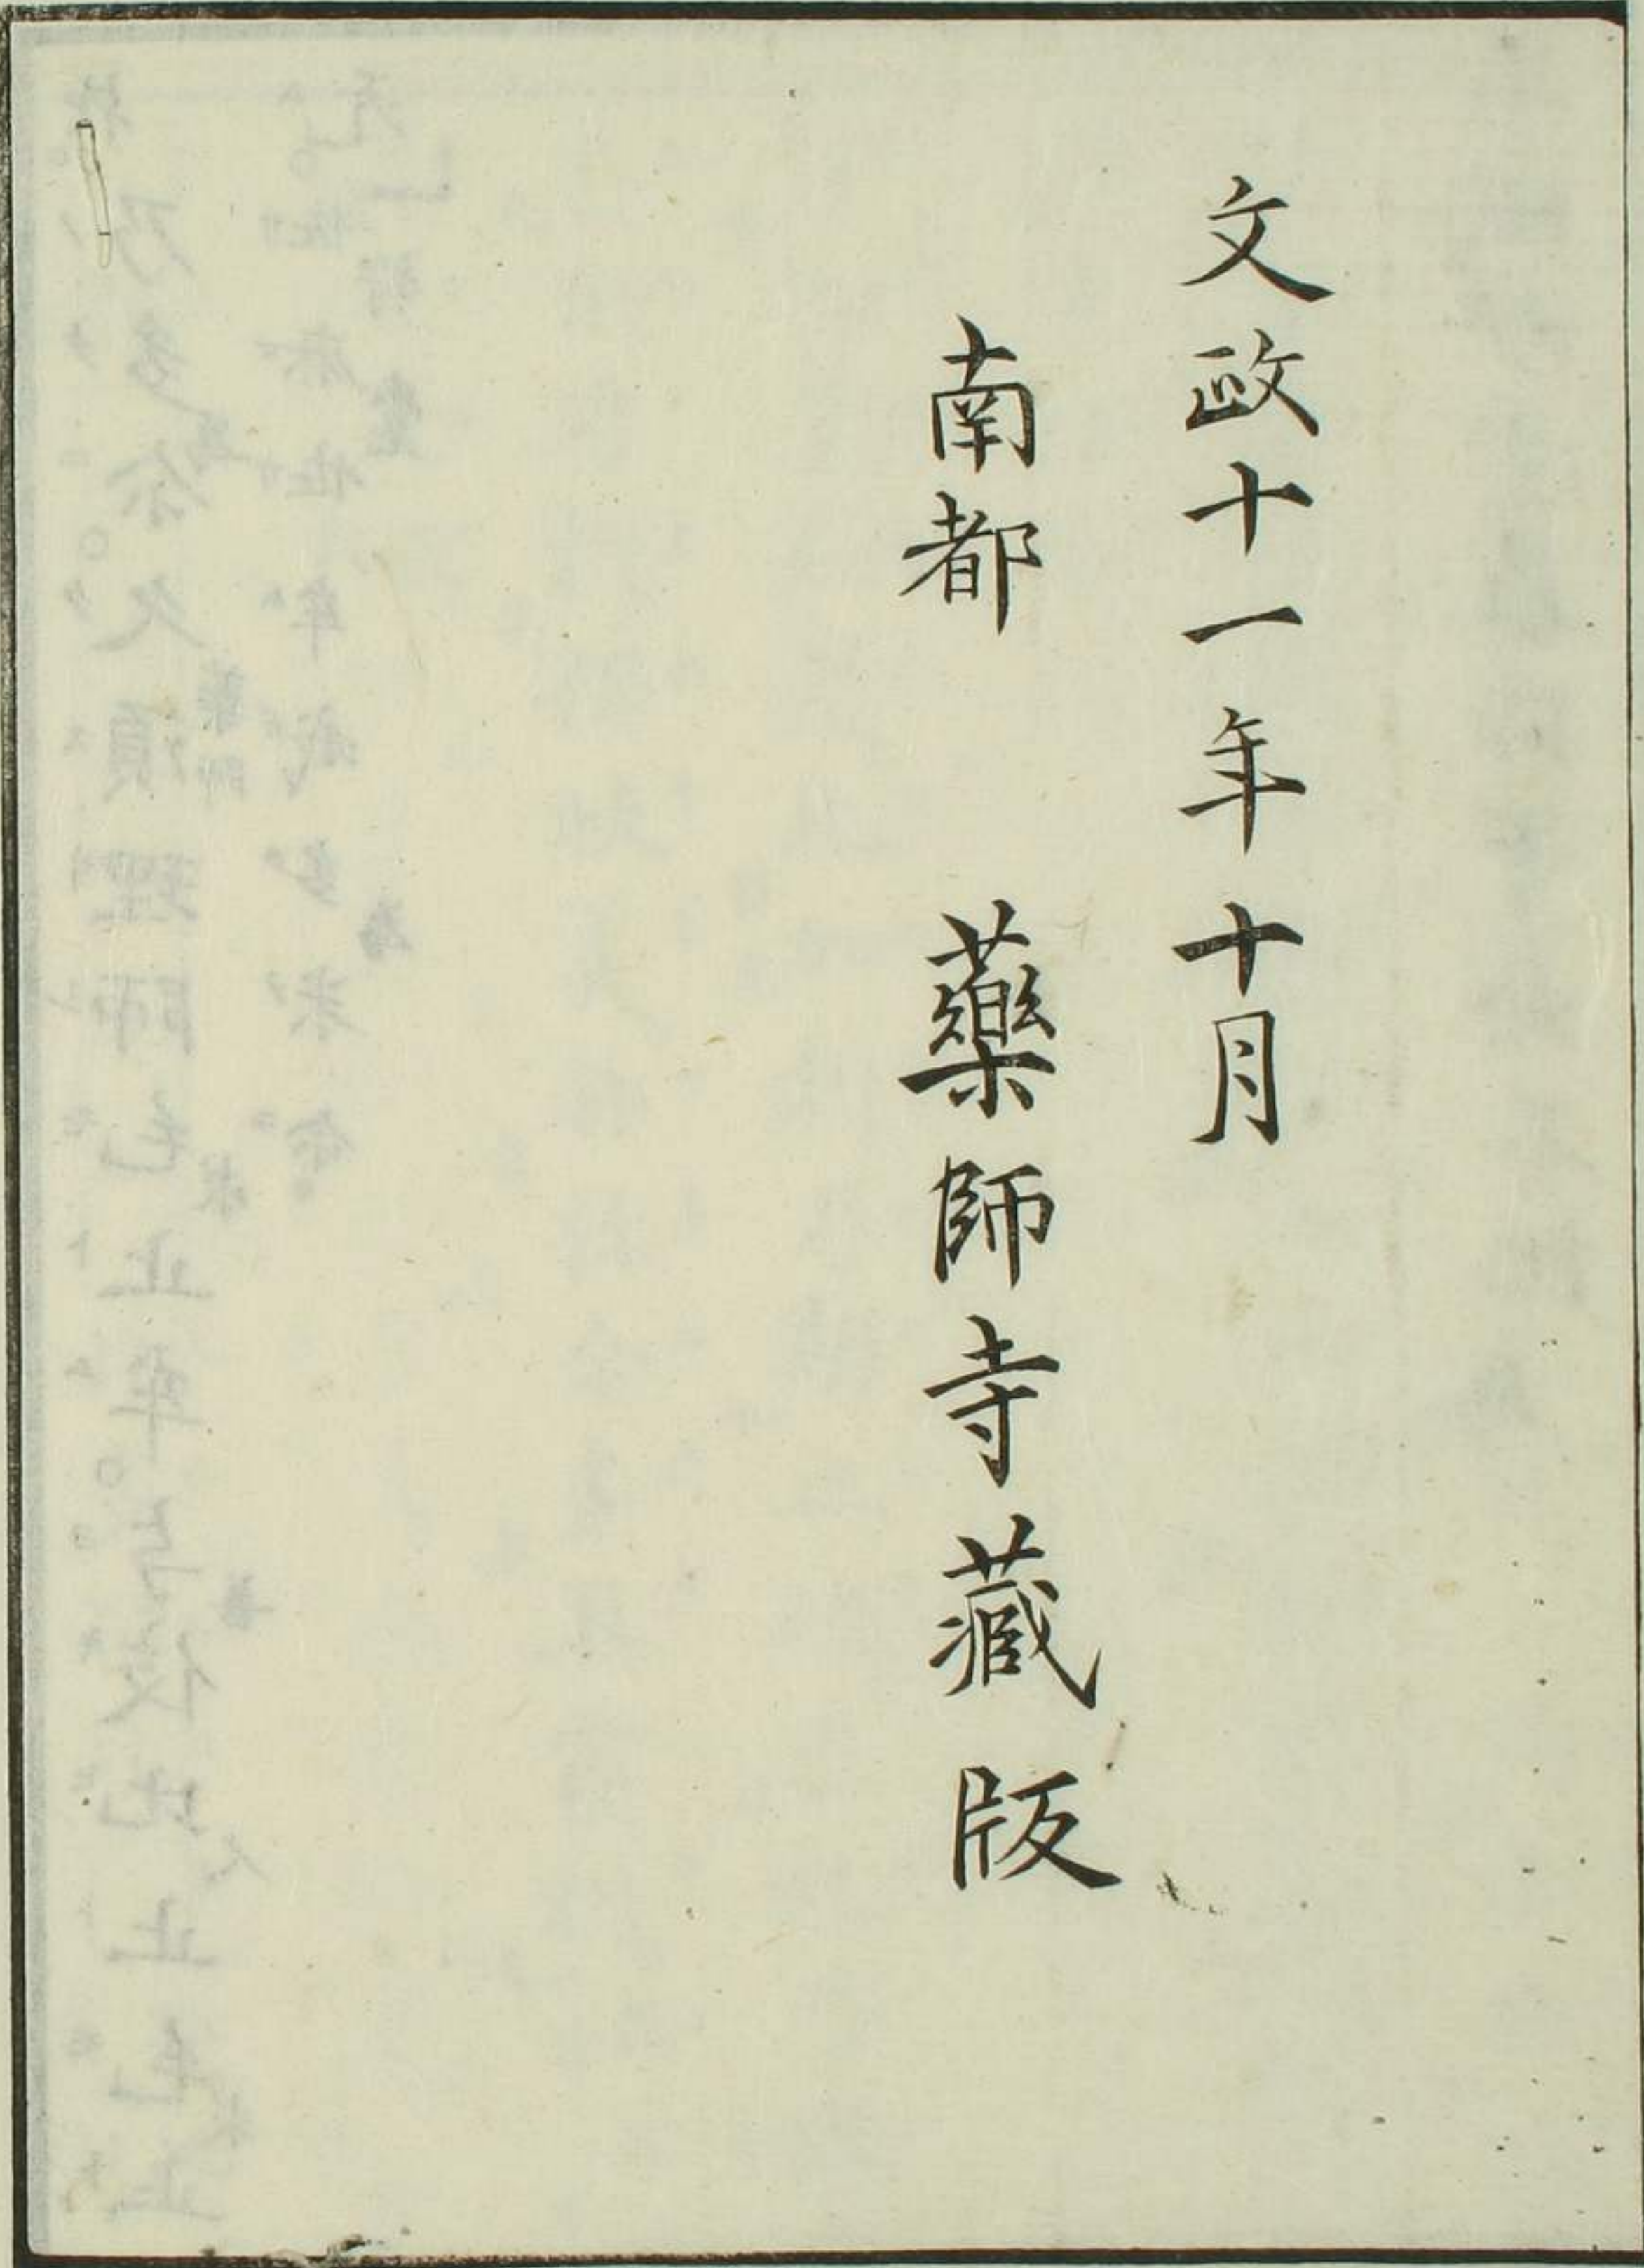 文政十一年十月
南都　藥師寺藏版